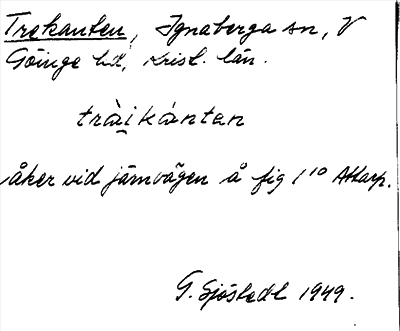 Trekanten, Ignaberga sn, V
Göinge hd, Krist. län.
tràikánten
åker vid järnvägen å fig 1¹⁰ Attarp.
G. Sjöstedt 1949.